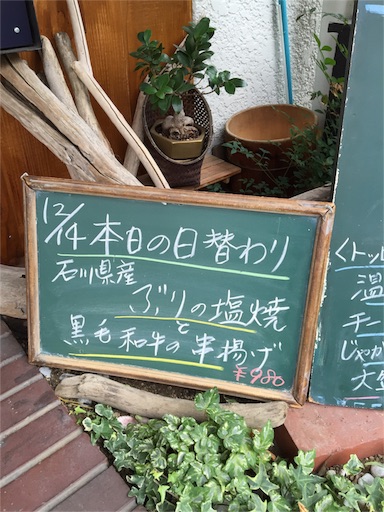 12/14 本日の日替わり
石川県産
ぶりの塩焼
と
黒毛和牛の串揚げ
¥980
くトッ
温
チー
じゃが